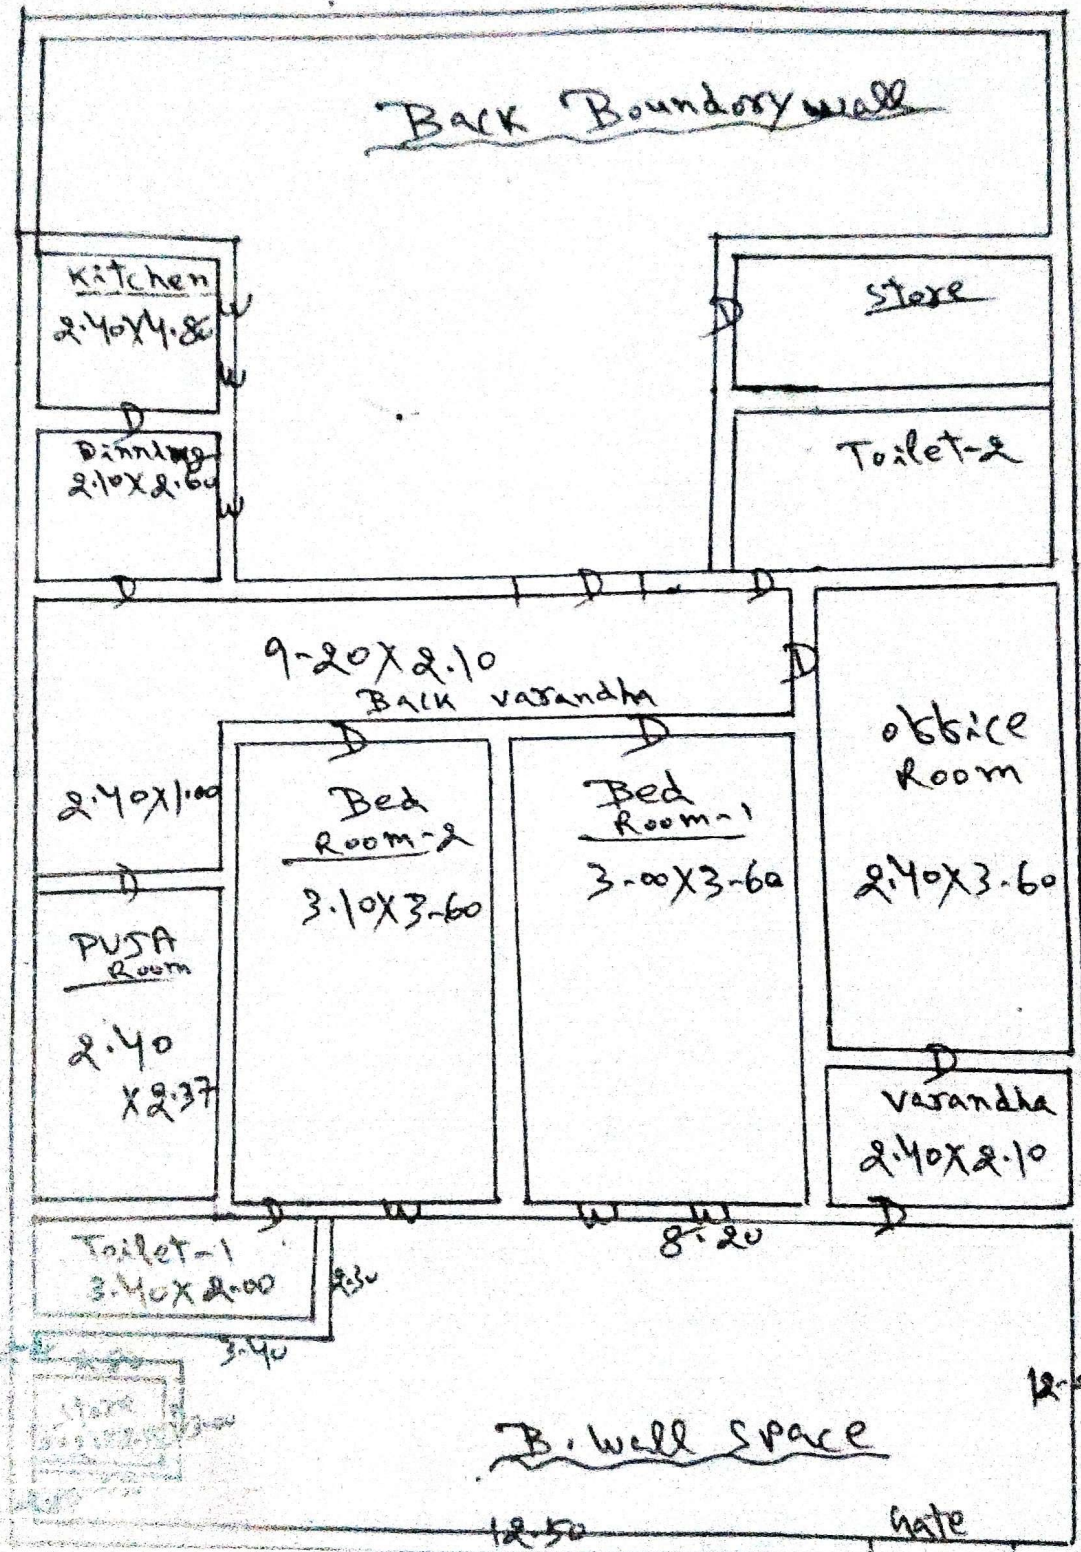 Back Boundory wall
Kitchen
2.40X4.80
W
W
D
store
D
Dinning
2.10X2.60
W
Toilet-2
D
D
D
9-20X2.10
Back varandha
D
D
D
obbice
Room
2.40X3.60
2.40X1.00
Bed
Room-2
3.10X3-60
Bed
Room-1
3-00X3-60
D
PUJA
Room
2.40
X2.37
D
varandha
2.40X2.10
D
W
W
W
D
8.20
Toilet-1
3.40X2.00
2.30
3.40
store
B. Wall Space
12.50
Gate